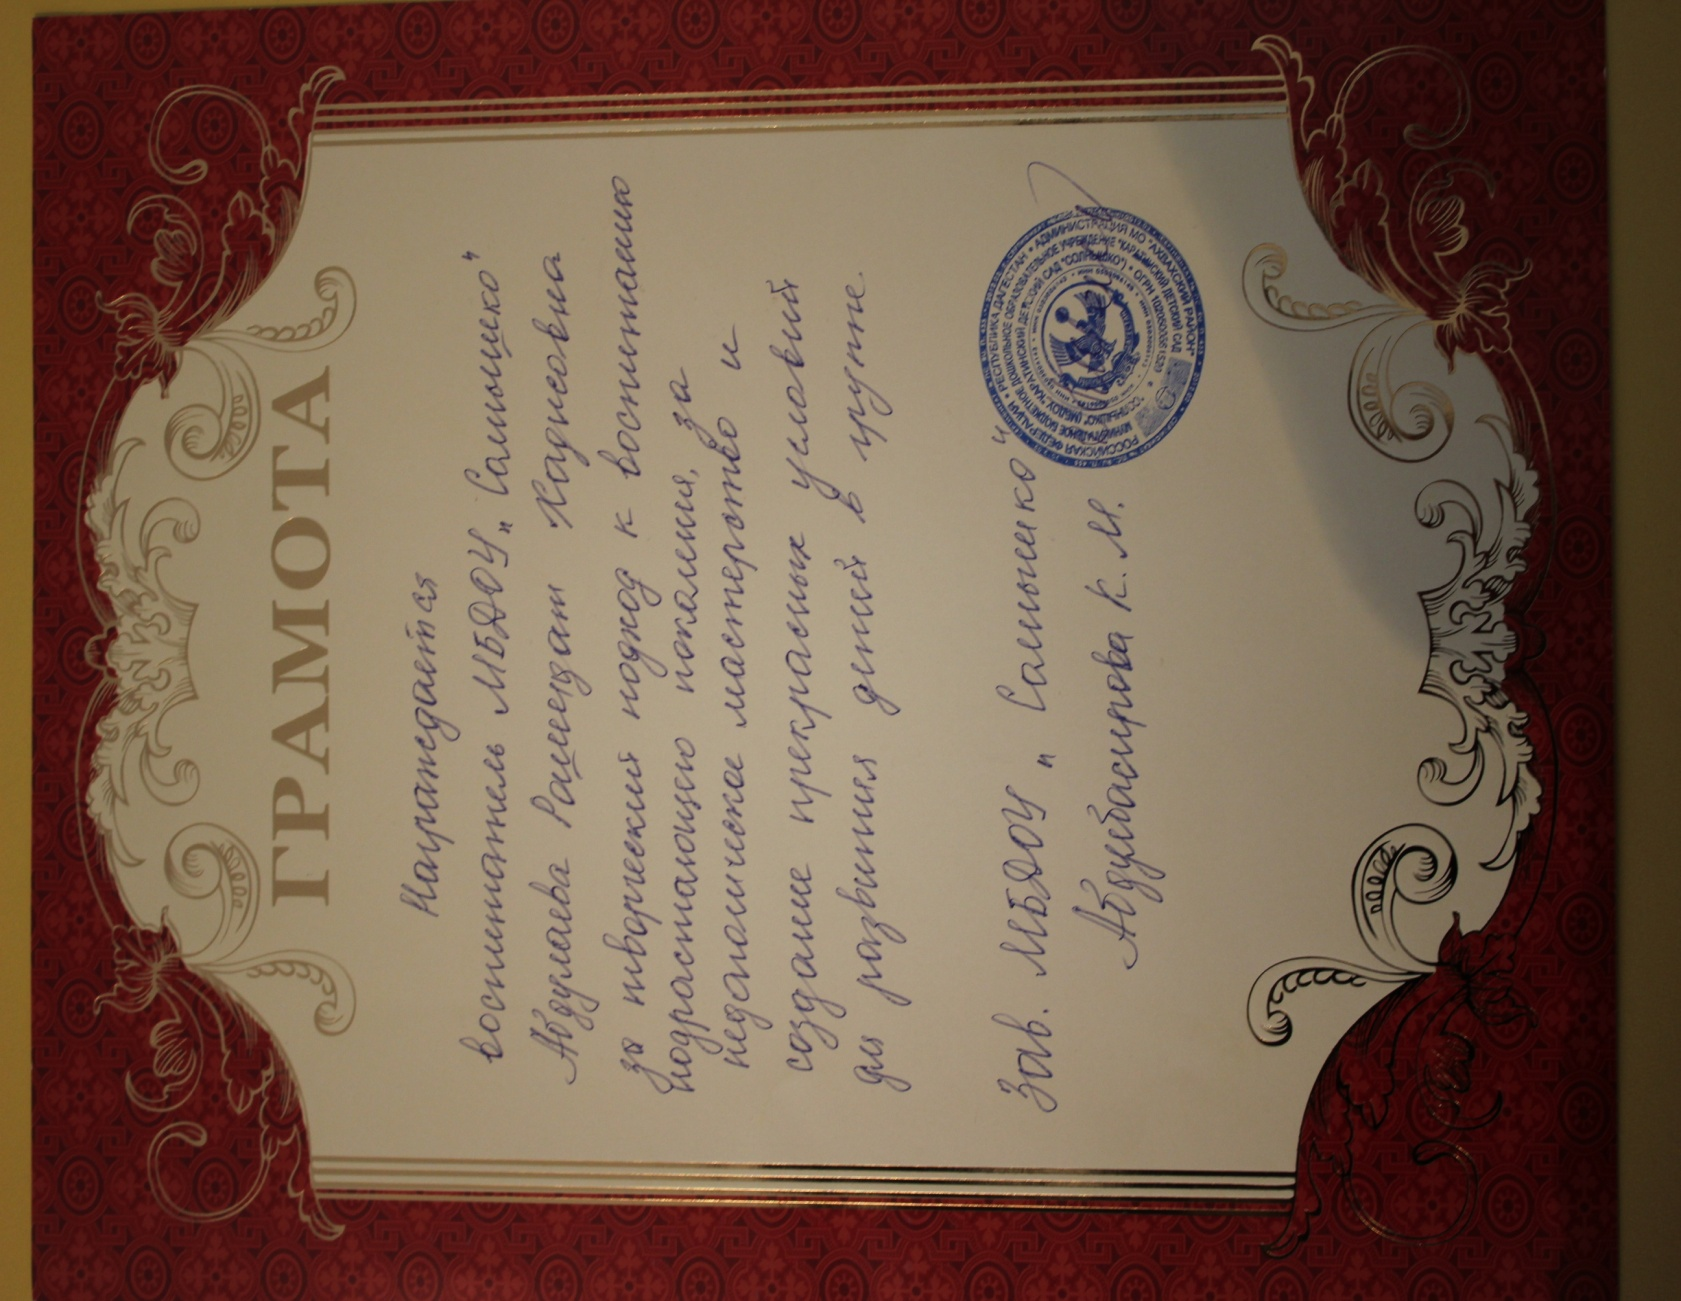 ГРАМОТА
Награждается
воспитатель МБДОУ „Солнышко"
Абдулаева Рашидат
за творческий подход к воспитанию
подрастающего поколения, за
педагогическое мастерство и
создание прекрасных условий
для развития детей в группе.
Зав. МБДОУ „Солнышко"
Абдулбасирова К. М.
РОССИЙСКАЯ ФЕДЕРАЦИЯ • РЕСПУБЛИКА ДАГЕСТАН • АДМИНИСТРАЦИЯ МО "АХВАХСКИЙ РАЙОН"
МУНИЦИПАЛЬНОЕ БЮДЖЕТНОЕ ДОШКОЛЬНОЕ ОБРАЗОВАТЕЛЬНОЕ УЧРЕЖДЕНИЕ "КАРАТИНСКИЙ ДЕТСКИЙ САД
"СОЛНЫШКО" (МБДОУ "КАРАТИНСКИЙ ДЕТСКИЙ САД "СОЛНЫШКО") • ОГРН